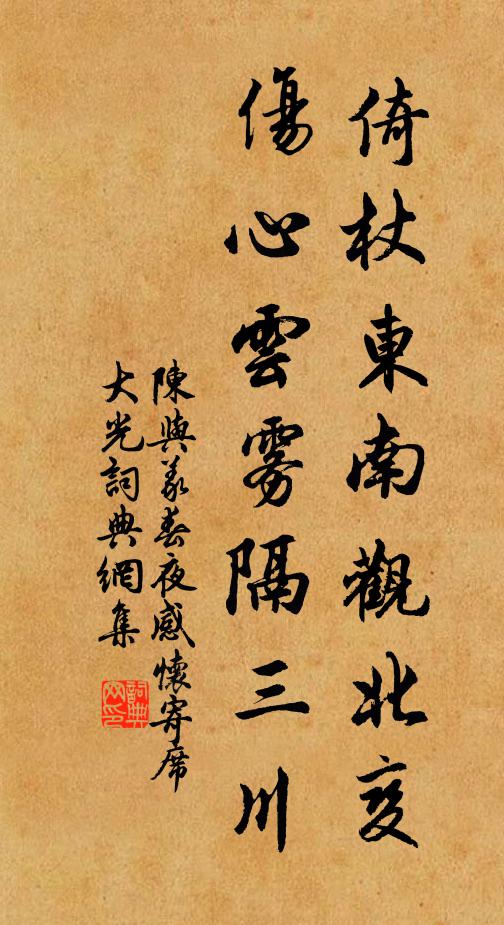 倚杖東南觀北變
傷心雲霧隔三川
陳與義春夜感懷寄席
大光詞典網集
詞典
网印